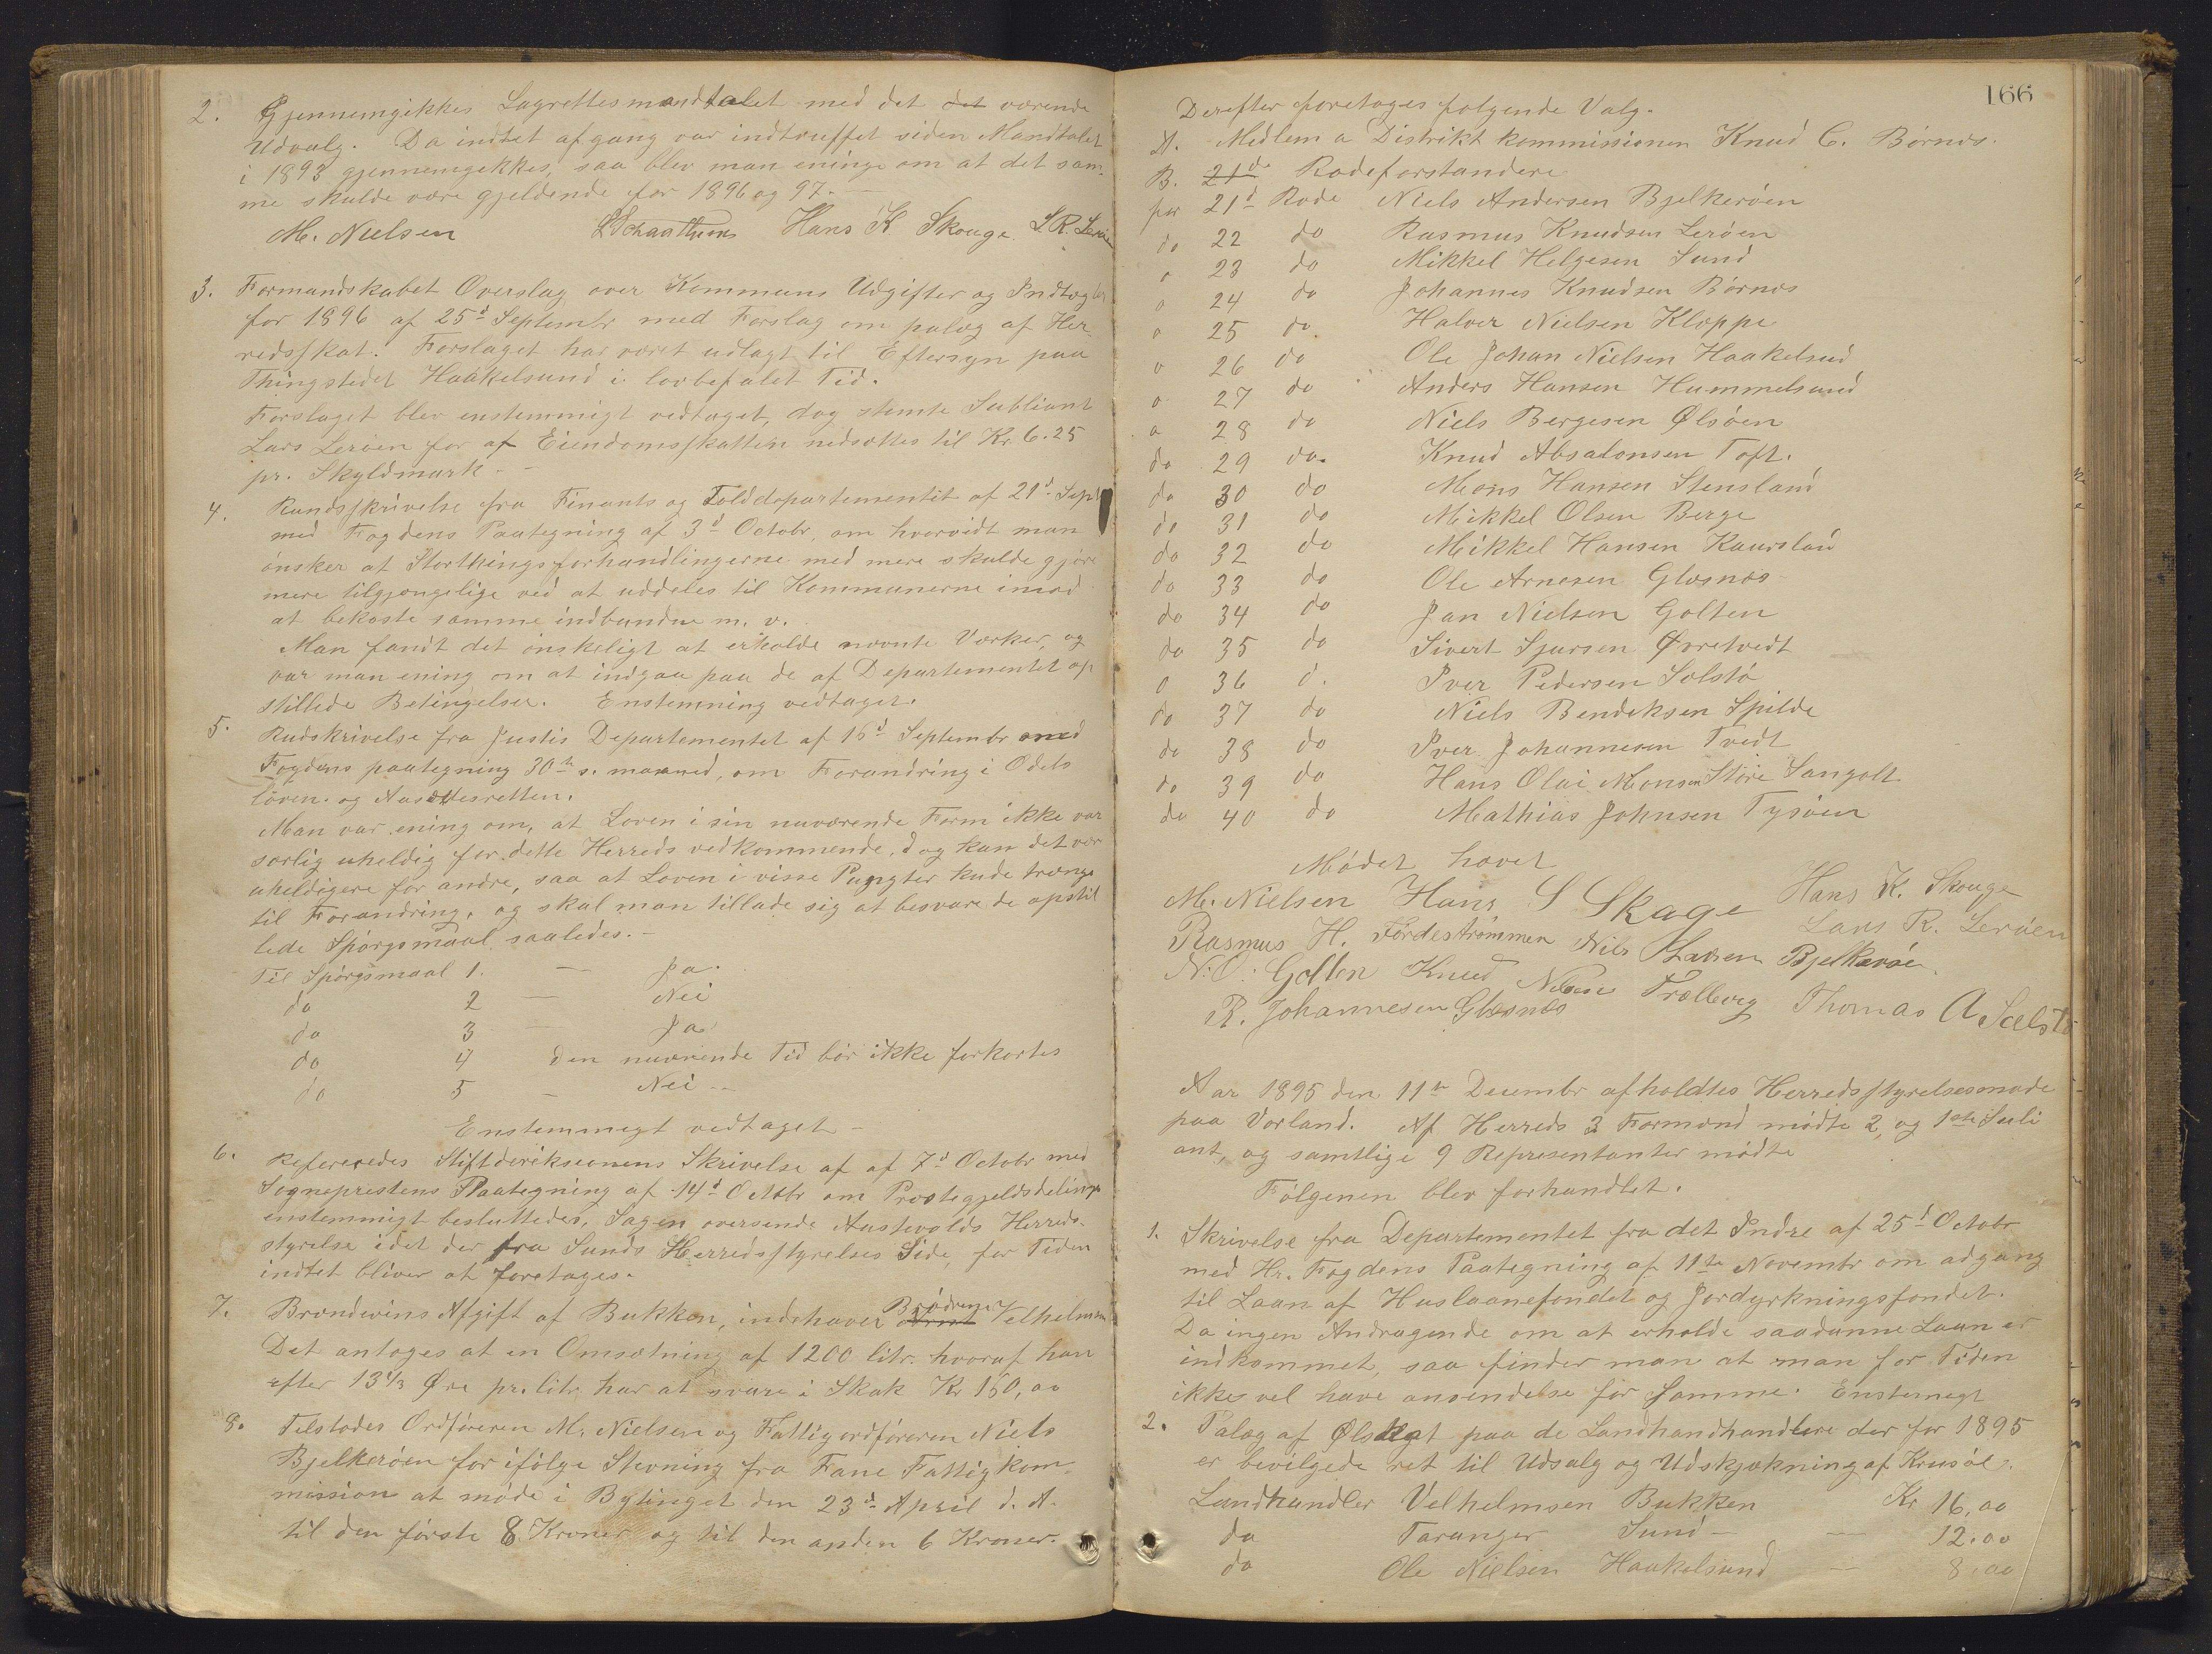 2. Gjennemgikkes Lagrettesmandtalet med det det værende
Udvalg. Da indtet afgang var indtruffet siden Mandtalet
i 1893 gjennemgikkes, saa blev man eninge om at det sam-
me skulde være gjeldende for 1896 og 97. —
M. Nielsen L Schaathuns Hans K Skouge L R. Lerøen
3. Formandskabet Overslag over Kommuns Udgifter og Indtægter
for 1896 af 25d Septembr med Forslag om palæg af Her-
redsskat. Forslaget har været udlagt til Eftersyn paa
Thingstedet Haakelsund i lovbefalet Tid.
Forslaget blev enstemmigt vedtaget, dog stemte Subliant
Lars Lerøen for af Eiendomsskatten nedsættes til Kr. 6.25
pr. Skyldmark. -
4. Rundsskrivelse fra Finants og Tolddepartementit af 21d Sept
med Fogdens Paategning af 3d Octobr, om hvorvidt man
ønsker at Storthingsforhandlingerne med mere skulde gjøre
mere tilgjængelige ved at uddeles til Kommunerne imod
at bekoste samme indbundne m. v.
Man fandt det ønskeligt at erholde nævnte Værker, og
var man ening om at indgaa paa de af Departementet op
stillede Betingelser. Enstemning vedtaget.
5. Rudskrivelse fra Justis Departementet af 16d Septembr med
Fogdens paategning 30te s. maaned, om Forandring i Odels
loven. og Aasædesretten.
Man var ening om, at Loven i sin nuværende Form ikke var
særlig uheldig for dette Herreds vedkommende, dog kan det vær
uheldigere for andre, saa at Loven i visse Pungter kude trænge
til Forandring, og skal man tillade sig at besvare de opstil
lede Spørgsmaal saaledes. -
Til Spørgsmaal 1. — Ja.
do 2 — Nei
do 3 — Ja
do 4 den nuværende Tid bør ikke forkortes
do 5 - Nei --
Enstemmegt vedtaget -
6. Refereredes Stiftdireksionens Skrivelse af af 7d Octobr med
Sogneprestens Paategning af 14d Octobr om Prestegjeldsdeling
enstemmigt besluttedes, Sagen oversende Austevolds Herreds-
styrelse idet der fra Sunds Herredsstyrelses Side, for Tiden
indtet bliver at foretages.
7. Brændevins Afgift af Bukken, indehaver Brødrene Velhelmsen
Det antages at en Omsætning af 1200 litr. hvoraf han
efter 13 1/3 Øre pr. litr har at svare i Skat Kr 160,00
8. Tilstodes Ordføreren M. Nielsen og Fattigordføreren Niels
Bjelkerøen for ifølge Stevning fra Fane Fattigkom-
mission at møde i Bytinget den 23d April d. A.
til den første 8 Kroner og til den anden 6 Kroner.
166
Derefter foretages følgende Valg.
A. Medlem a Distrikt kommissionen Knud C. Børnes.
B. 21de Rodeforstandere
for 21d Rode Niels Andersen Bjelkerøen
do 22 do Rasmus Knudsen Lerøen
o 23 do Mikkel Helgesen Sund
o 24 do Johannes Knudsen Børnes
o 25 do. Halver Nielsen Kleppe
o 26 do Ole Johan Nielsen Haakelsud
o 27 do Anders Hansen Hummelsund
o 28 do Niels Bergesen Ølsøen
do 29 do. Knud Absalonsen Toft.
do 30 do Mons Hansen Stensland
do 31 do Mikkel Olsen Berge
do 32 do Mikkel Hansen Kausland
do 33 do Ole Arnesen Glæsnes
do 34 do Jan Nielsen Golten
do 35 do Sivert Sjursen Øvretvedt
o 36 d. Iver Pedersen Solstø
do 37 do Niels Bendeksen Spilde
do 38 do Iver Johannesen Tvedt
do 39 do Hans Olai Monsen Store Sangolt
do 40 do Mathias Johnsen Tysøen
Mødet hævet
M. Nielsen Hans S Skage Hans K. Skouge
Rasmus H. Førdestrømmen Nils Larsen Bjelkerøe Lars R. Lerøen
N. O. Golten Knud Nilsen Trælleviq Thomas A Sælstø
R. Johannesen Glæsnes
Aar 1895 den 11te Decembr afholdtes Herredsstyrelsesmøde
paa Vorland. Af Herreds 3 Formænd mødte 2, og 1ste Supli
ant, og samtlige 9 Representanter mødte
Følgenen blev forhandlet.
1. Skrivelse fra Departementet fra det Indre af 25d Octobr
med Hr. Fogdens Paategning af 11te Novembr om adgang
til Laan af Huslaanefondet og Jordyrkningsfondet.
Da ingen Andragende om at erholde saadanne Laan er
indkommet, saa finder man at man for Tiden
ikke vel have anvendelse for Samme. Enstemegt
2. Palæg af Ølskat paa de Landhandhandlere der for 1895
er bevilgede ret til Udsalg og Udskjænkning af Krusøl.
Landhandler Velhelmsen Bukken Kr 16,00
do Taranger Sund - — 12.00
do Ole Nielsen Haakelsund — 8,00